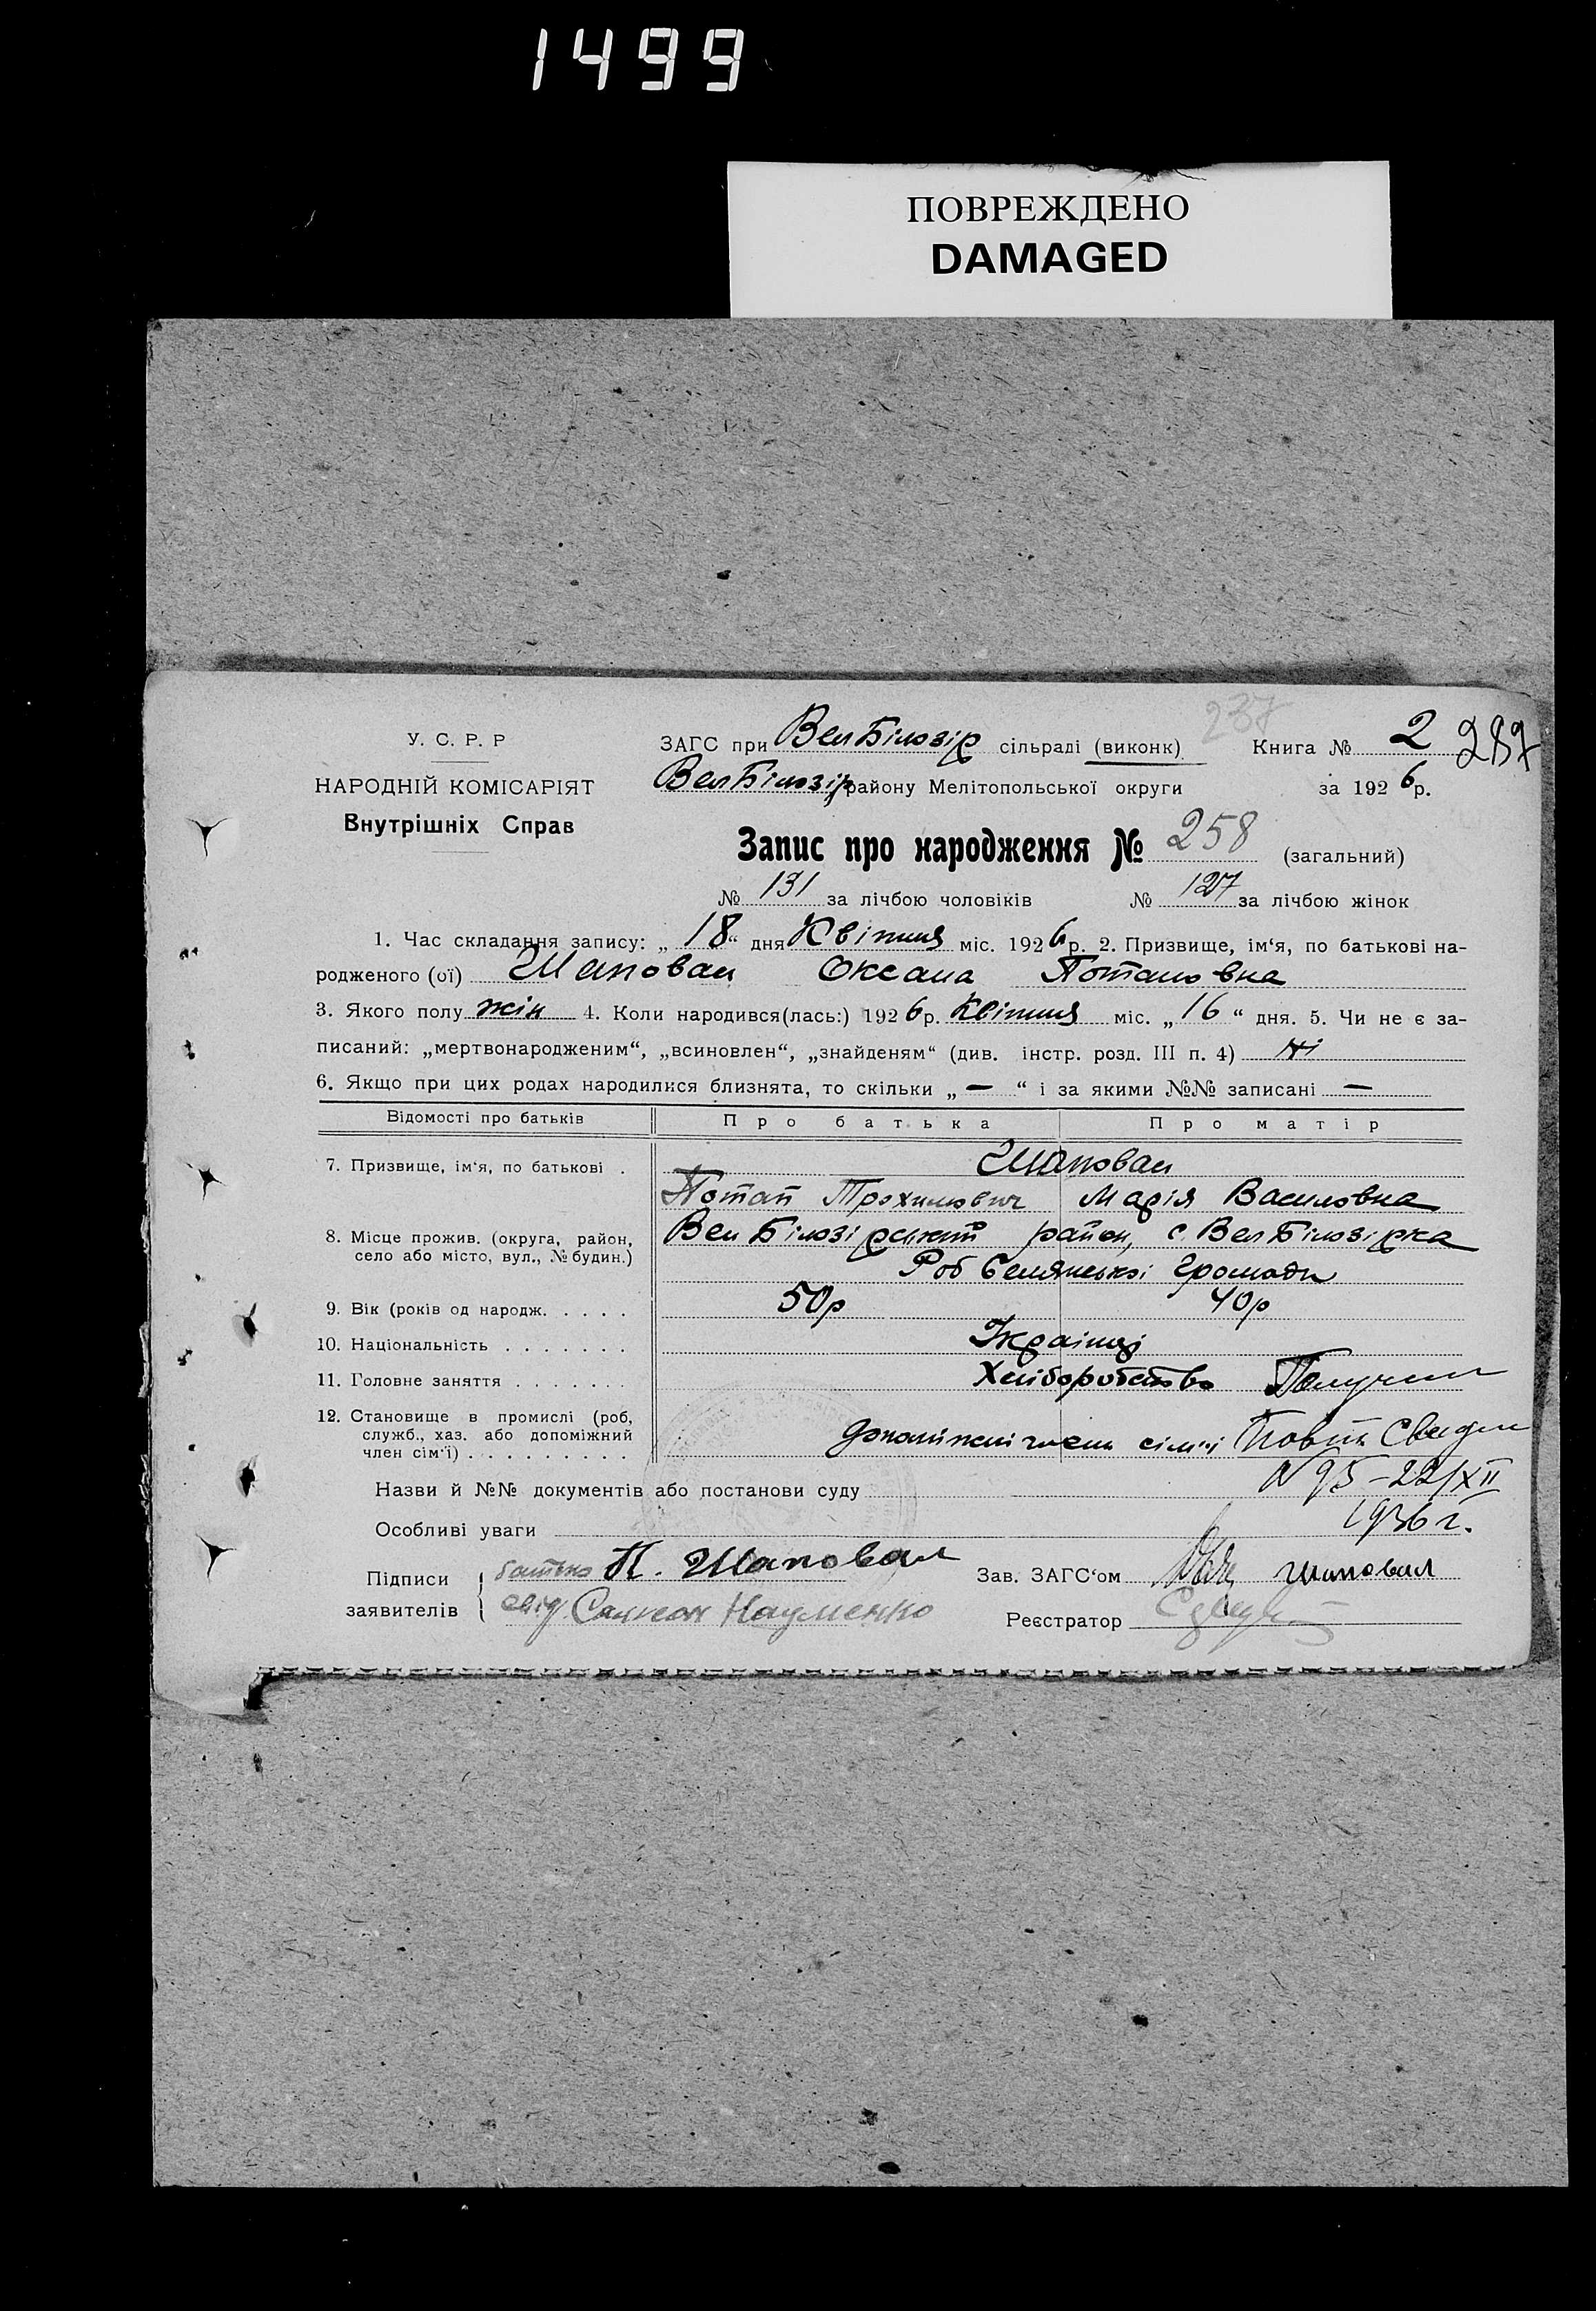 1499
ПОВРЕЖДЕНО
DAMAGED
237
У. С. Р. Р
ЗАГС при Вел Білозір сільраді (виконк) Книга № 2 237
НАРОДНІЙ КОМІСАРІЯТ
Вел Білозір району Мелітопольської округи за 1926 р.
Внутрішніх Справ
Запис про народження № 258 (загальний)
№ 131 за лічбою чоловіків № 127 за лічбою жінок
1. Час складання запису: „18“ дня Квітня міс. 1926 р. 2. Призвище, ім‘я, по батькові на-
родженого (ої) Шаповал Оксана Потаповна
3. Якого полу жін 4. Коли народився(лась:) 1926 р. Квітня міс. „16“ дня. 5. Чи не є за-
писаний: „мертвонародженим“, „всиновлен“, „знайденям“ (див. інстр. розд. III п. 4) ні
6. Якщо при цих родах народилися близнята, то скільки „—“ і за якими №№ записані —
Відомості про батьків Про батька Про матір
7. Призвище, ім‘я, по батькові . Шаповал
Потап Трохимович Марія Василовна
8. Місце прожив. (округа, район, Вел Білозірський район, с. Вел Білозірка
село або місто, вул., № будин.)
Роб Селянської Громади
9. Вік (років од народж. . . . . 50р 40р
10. Національність . . . . . . . Українці
11. Головне заняття . . . . . . Хліборобство
12. Становище в промислі (роб,
служб., хаз. або допоміжний
член сім‘ї) . . . . . . . . . члени сім'ї
Назви й №№ документів або постанови суду N 95 – 22/XII
Особливі уваги 1936 г.
Підписи батько П. Шаповал Зав. ЗАГС‘ом Шаповал
заявителів свід. Науменко Реєстратор